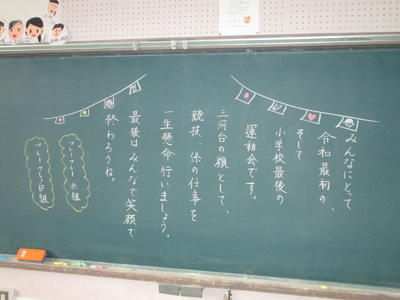 みんなにとって
令和最初の、
そして
小学校最後の
運動会です。
三河台の顔として、
競技、係の仕事を
一生懸命行いましょう。
最後はみんなで笑顔で
終わろうね。
フレーフレー赤組
フレーフレー白組